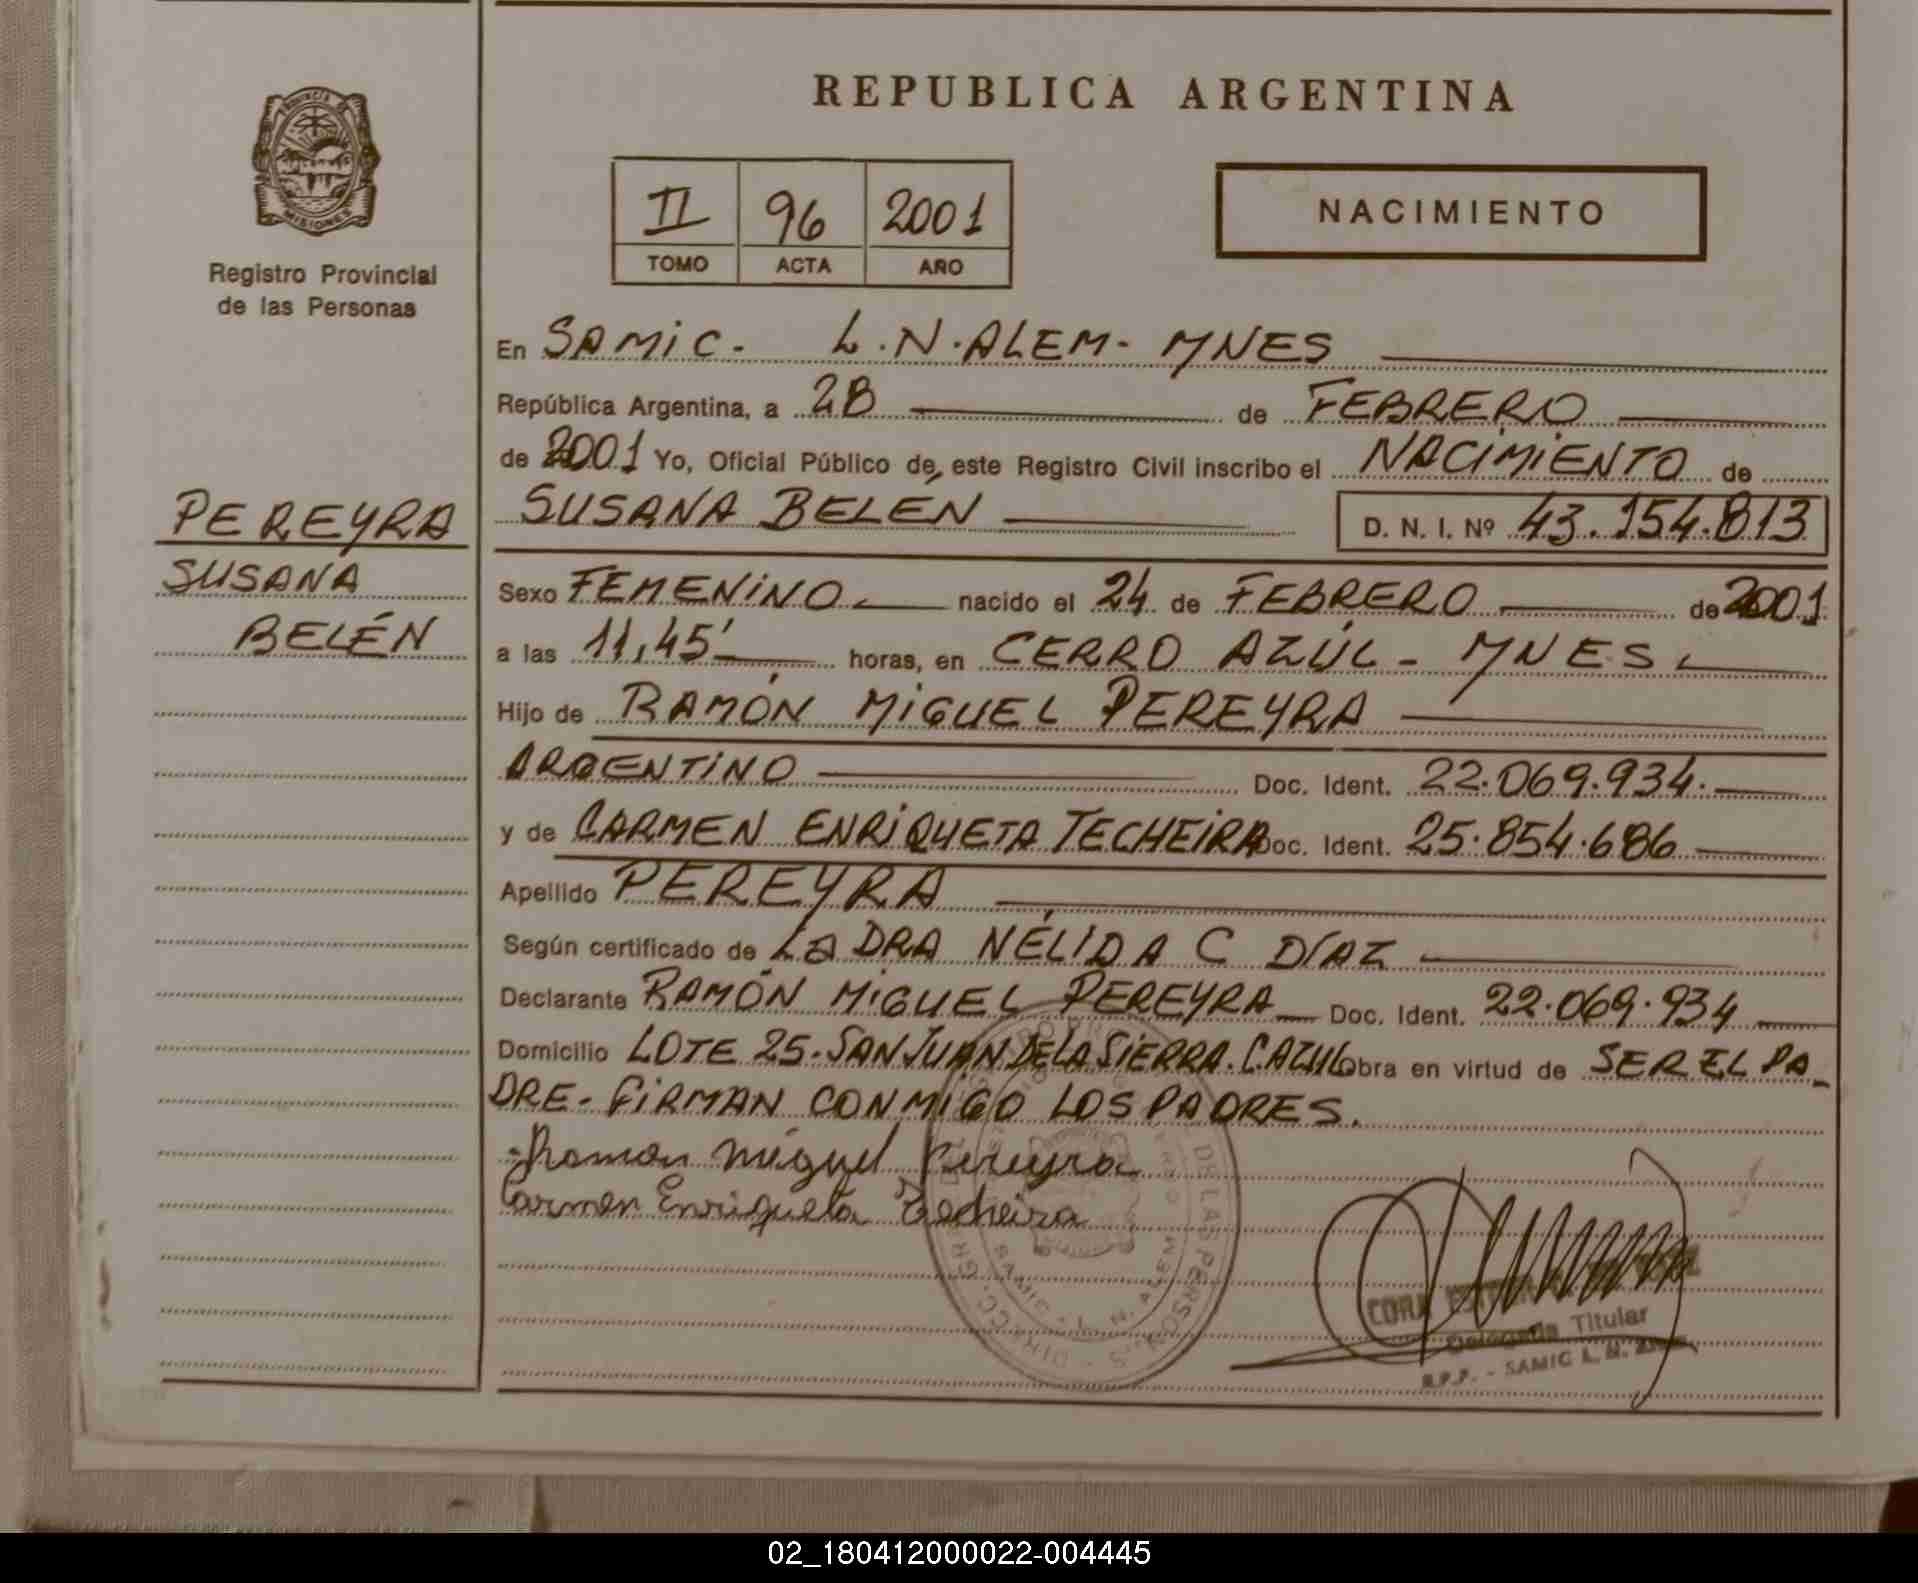 REPUBLICA ARGENTINA
PROVINCIA DE
MISIONES
Registro Provincial
de las Personas
II 96 2001
TOMO ACTA AÑO
NACIMIENTO
PEREYRA
SUSANA
BELÉN
En SAMIC. L.N.ALEM- MNES
República Argentina, a 28 de FEBRERO
de 2001 Yo, Oficial Público de este Registro Civil inscribo el NACIMIENTO de
SUSANA BELÉN D. N. I. Nº 43.154.813
Sexo FEMENINO nacido el 24 de FEBRERO de 2001
a las 11,45' horas, en CERRO AZÚL - MNES.
Hijo de RAMÓN MIGUEL PEREYRA
ARGENTINO Doc. Ident. 22.069.934.
y de CARMEN ENRIQUETA TECHEIRA Doc. Ident. 25.854.686
Apellido PEREYRA
Según certificado de LA DRA NÉLIDA C DÍAZ
Declarante RAMÓN MIGUEL PEREYRA Doc. Ident. 22.069.934
Domicilio LOTE 25. SAN JUAN DE LA SIERRA. C. AZUL Obra en virtud de SER EL PA_
DRE. FIRMAN CONMIGO LOS PADRES.
Ramon Miguel Pereyra
Carmen Enriqueta Techeira
DE LAS PERSONAS
SAMIC - L. N. ALEM
CORA
Delegada Titular
R.P.P. - SAMIC L. N. Alem
02_180412000022-004445